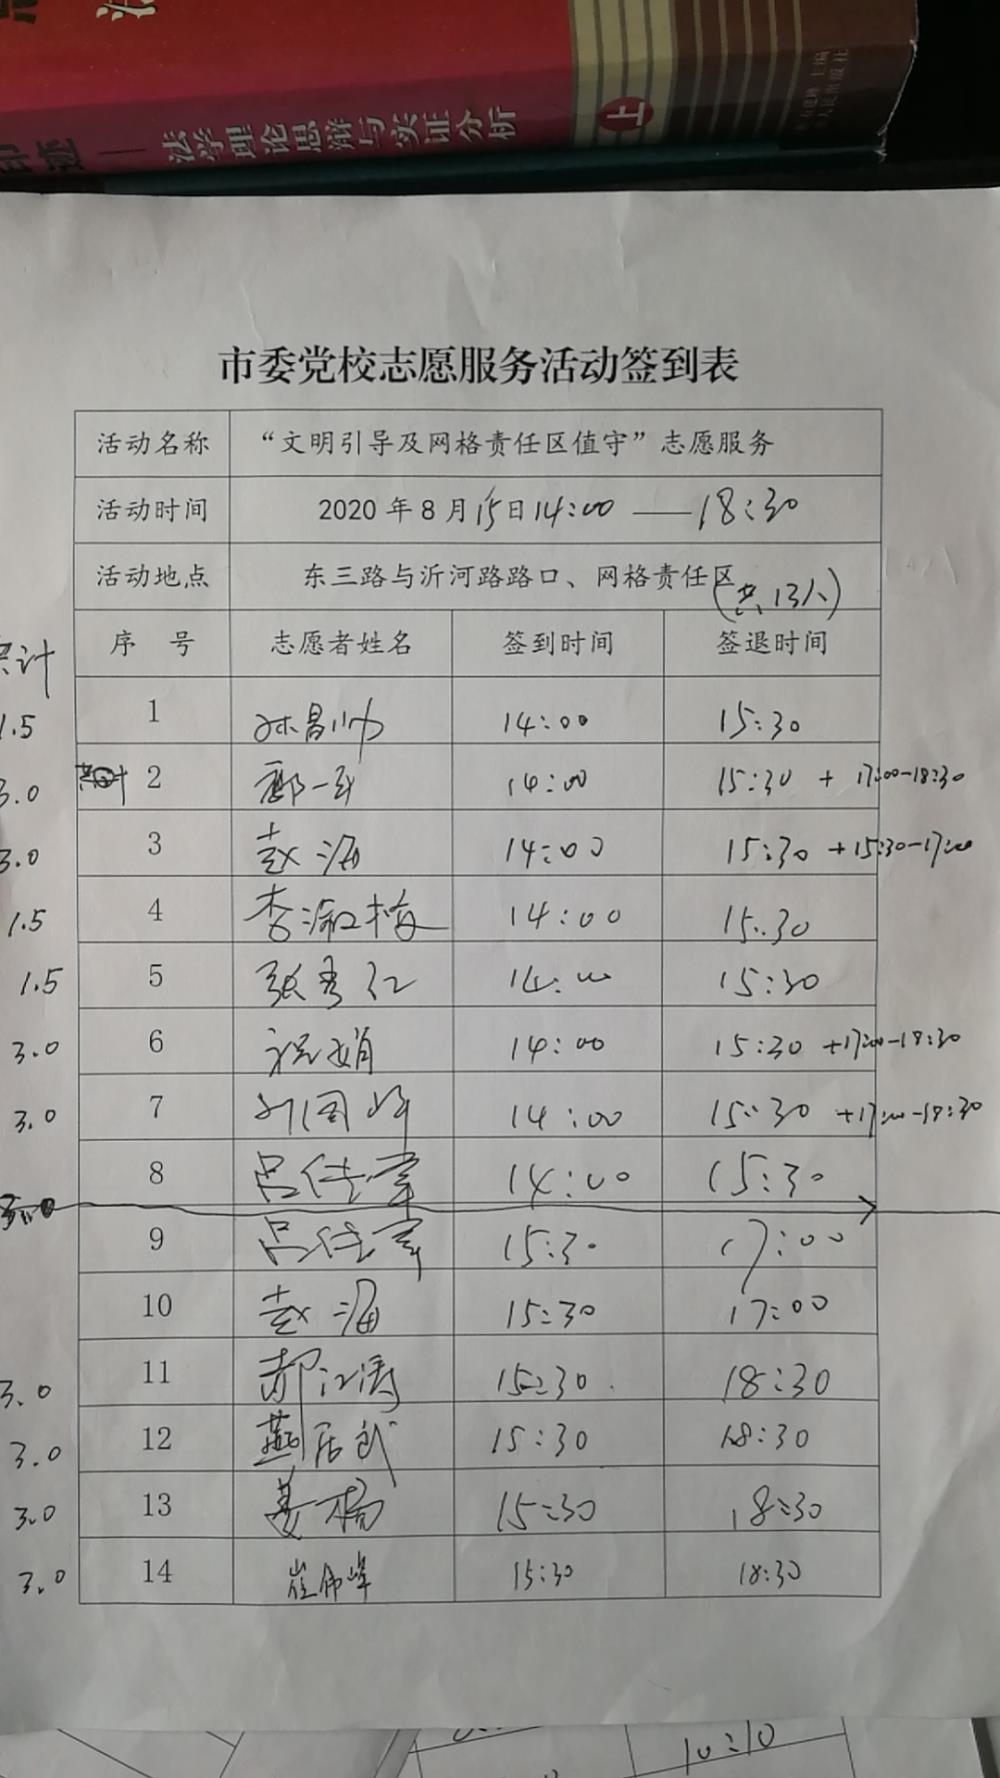 法学理论思辩与实证分析
上
市委党校志愿服务活动签到表
活动名称 “文明引导及网格责任区值守”志愿服务
活动时间 2020年8月15日14:00——18:30
活动地点 东三路与沂河路路口、网格责任区
(共13人)
共计 序 号 志愿者姓名 签到时间 签退时间
1.5 1 孙昌帅 14:00 15:30
3.0 2 14:00 15:30 + 17:00-18:30
3.0 3 赵海 14:00 15:30 +15:30-17:00
1.5 4 李淑梅 14:00 15:30
1.5 5 张秀红 14:00 15:30
3.0 6 祝娟 14:00 15:30 +17:00-18:30
3.0 7 刘国峰 14:00 15:30 +17:00-18:30
3.0 8 吕佳宰 14:00 15:30
9 吕佳宰 15:30 17:00
10 赵海 15:30 17:00
3.0 11 郝江涛 15:30 18:30
3.0 12 燕居武 15:30 18:30
3.0 13 姜楠 15:30 18:30
3.0 14 崔伟峰 15:30 18:30
10:10